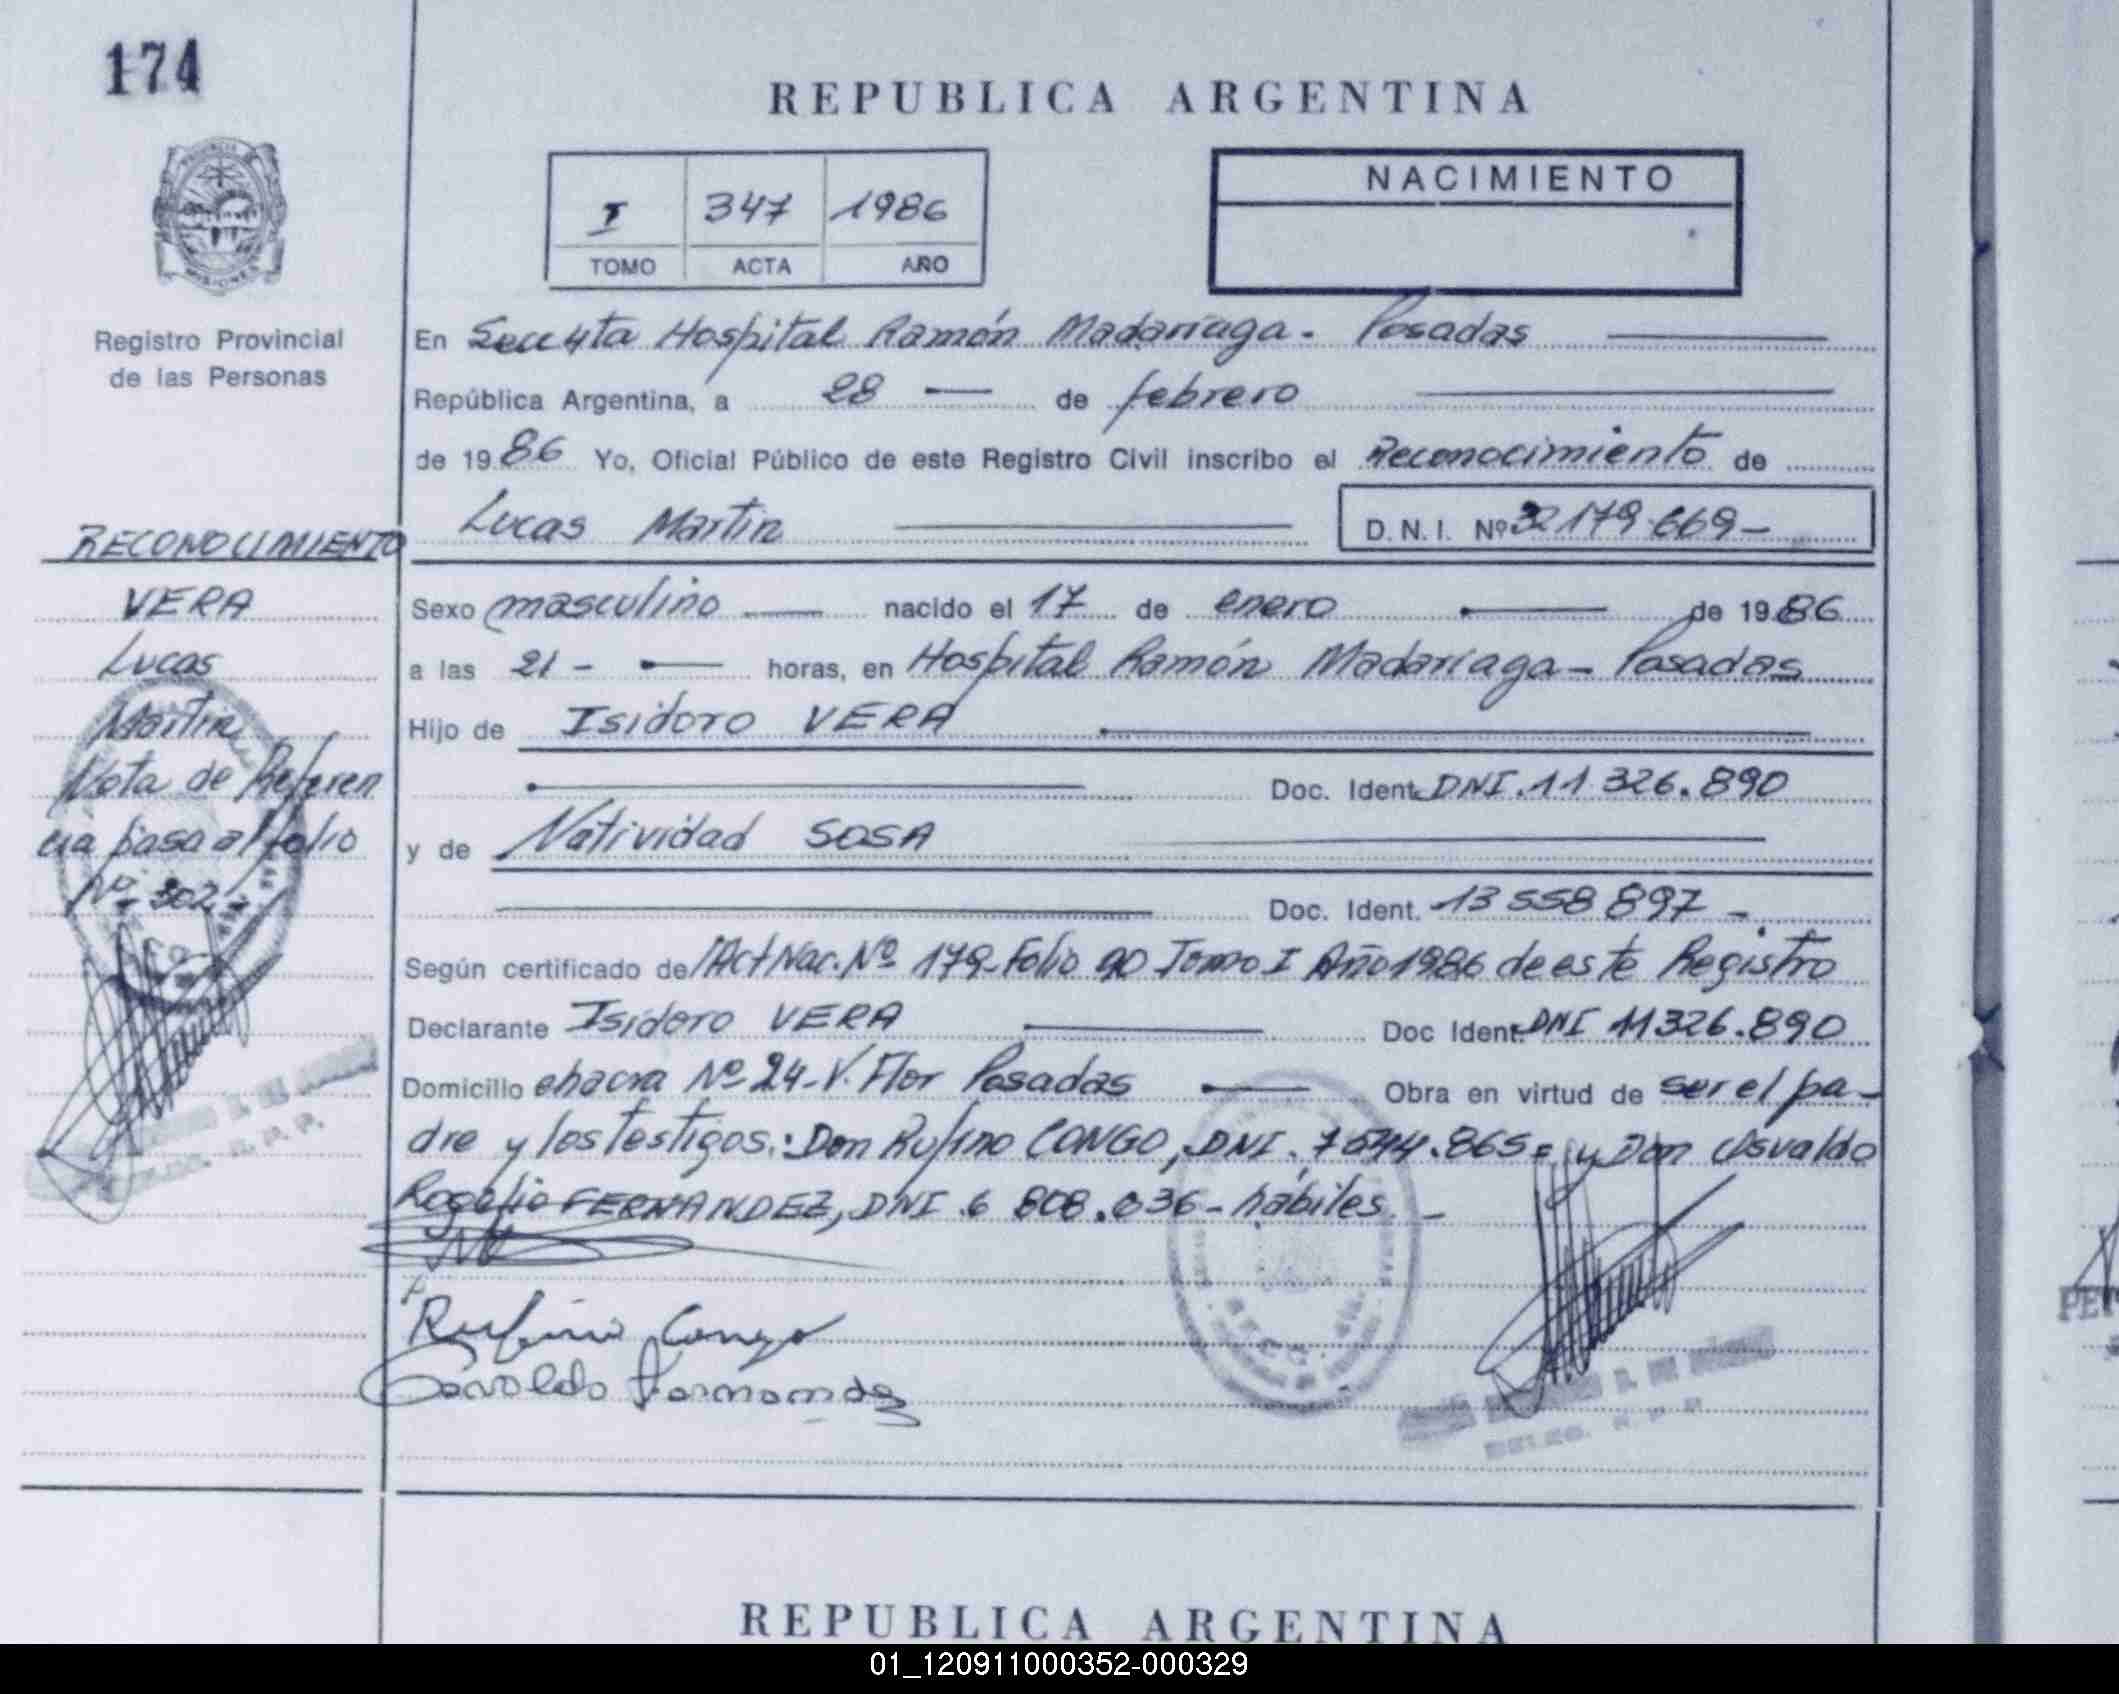 174
REPUBLICA ARGENTINA
NACIMIENTO
I 347 1986
TOMO ACTA AÑO
Registro Provincial
de las Personas
En Secc 4ta Hospital Ramón Madariaga - Posadas
República Argentina, a 28 de febrero
de 1986 Yo, Oficial Público de este Registro Civil inscribo el Reconocimiento de
Lucas Martin D.N.I. Nº 32179.669-
RECONOCIMIENTO
VERA
Lucas
Martin
Nota de Referen
cia pasa al folio
Nº 302-
Sexo masculino nacido el 17 de enero de 1986
a las 21 - horas, en Hospital Ramón Madariaga - Posadas
Hijo de Isidoro VERA
Doc. Ident. DNI. 11 326.890
y de Natividad SOSA
Doc. Ident. 13 558 897 -
Según certificado de Act Nac. Nº 179 - Folio 90 Tomo I Año 1986 de este Registro
Declarante Isidoro VERA Doc Ident. DNI 11326.890
Domicilio chacra Nº 24 - V. Flor Posadas Obra en virtud de ser el pa-
dre y los testigos: Don Rufino CONGO, DNI. 7544.865= y Don Osvaldo
Rogelio FERNANDEZ, DNI 6 808.036 - hábiles. -
Rufino Congo
Osvaldo Fernandez
REPUBLICA ARGENTINA
01_120911000352-000329